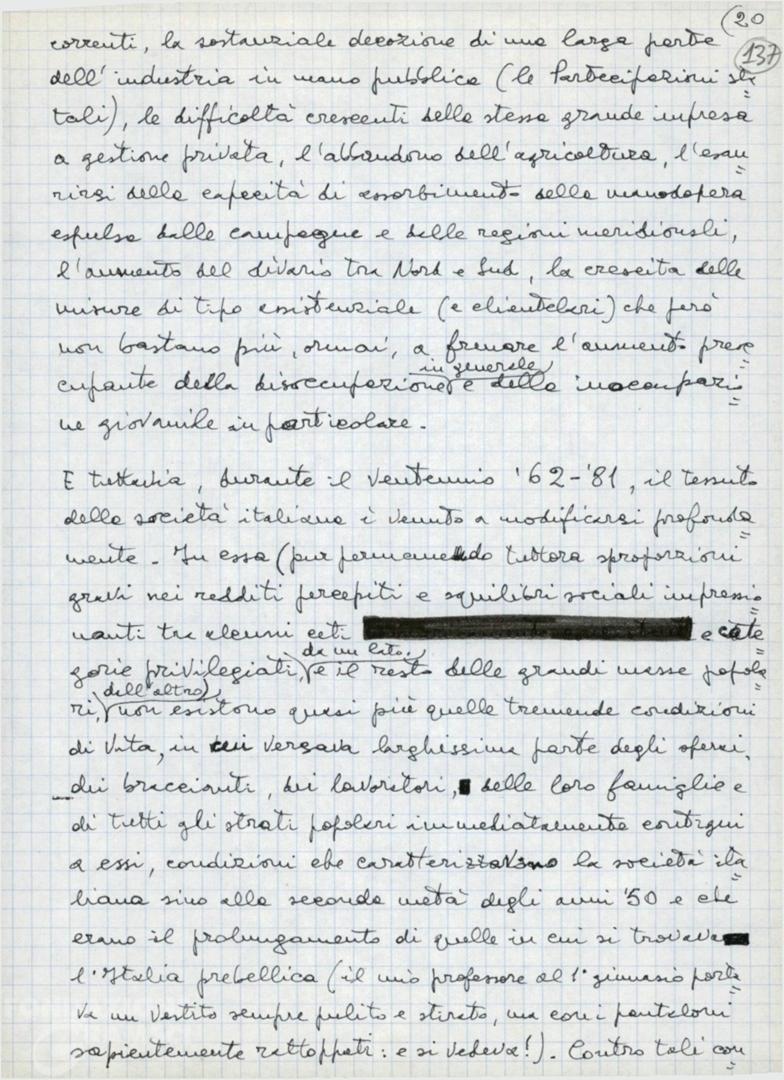 (20
137
correnti, la sostanziale decozione di una larga parte
dell'industria in mano pubblica (le Partecipazioni sta=
tali), le difficoltà crescenti della stessa grande impresa
a gestione privata, l'abbandono dell'agricoltura, l'esau=
rirsi della capacità di assorbimento della manodopera
espulsa dalle campagne e dalle regioni meridionali,
l'aumento del divario tra Nord e Sud, la crescita delle
misure di tipo assistenziale (e clientelari) che però
non bastano più, ormai, a frenare l'aumento preoc=
in generale
cupante della disoccupazione e della inoccupazio=
ne giovanile in particolare.
E tuttavia, durante il ventennio '62-'81, il tessuto
della società italiana è venuto a modificarsi profonda=
mente. In essa (pur permanendo tuttora sproporzioni
gravi nei redditi percepiti e squilibri sociali impressio=
nanti tra alcuni ceti e cate=
da un lato,
gorie privilegiati, e il resto delle grandi masse popola=
dall'altro)
ri, non esistono quasi più quelle tremende condizioni
di vita, in cui versava larghissima parte degli operai,
dei braccianti, dei lavoratori, delle loro famiglie e
di tutti gli strati popolari immediatamente contigui
a essi, condizioni che caratterizzavano la società ita=
liana sino alla seconda metà degli anni '50 e che
erano il prolungamento di quelle in cui si trovava
l'Italia prebellica (il mio professore al 1° ginnasio porta=
va un vestito sempre pulito e stirato, ma con i pantaloni
sapientemente rattoppati: e si vedeva!). Contro tali con=